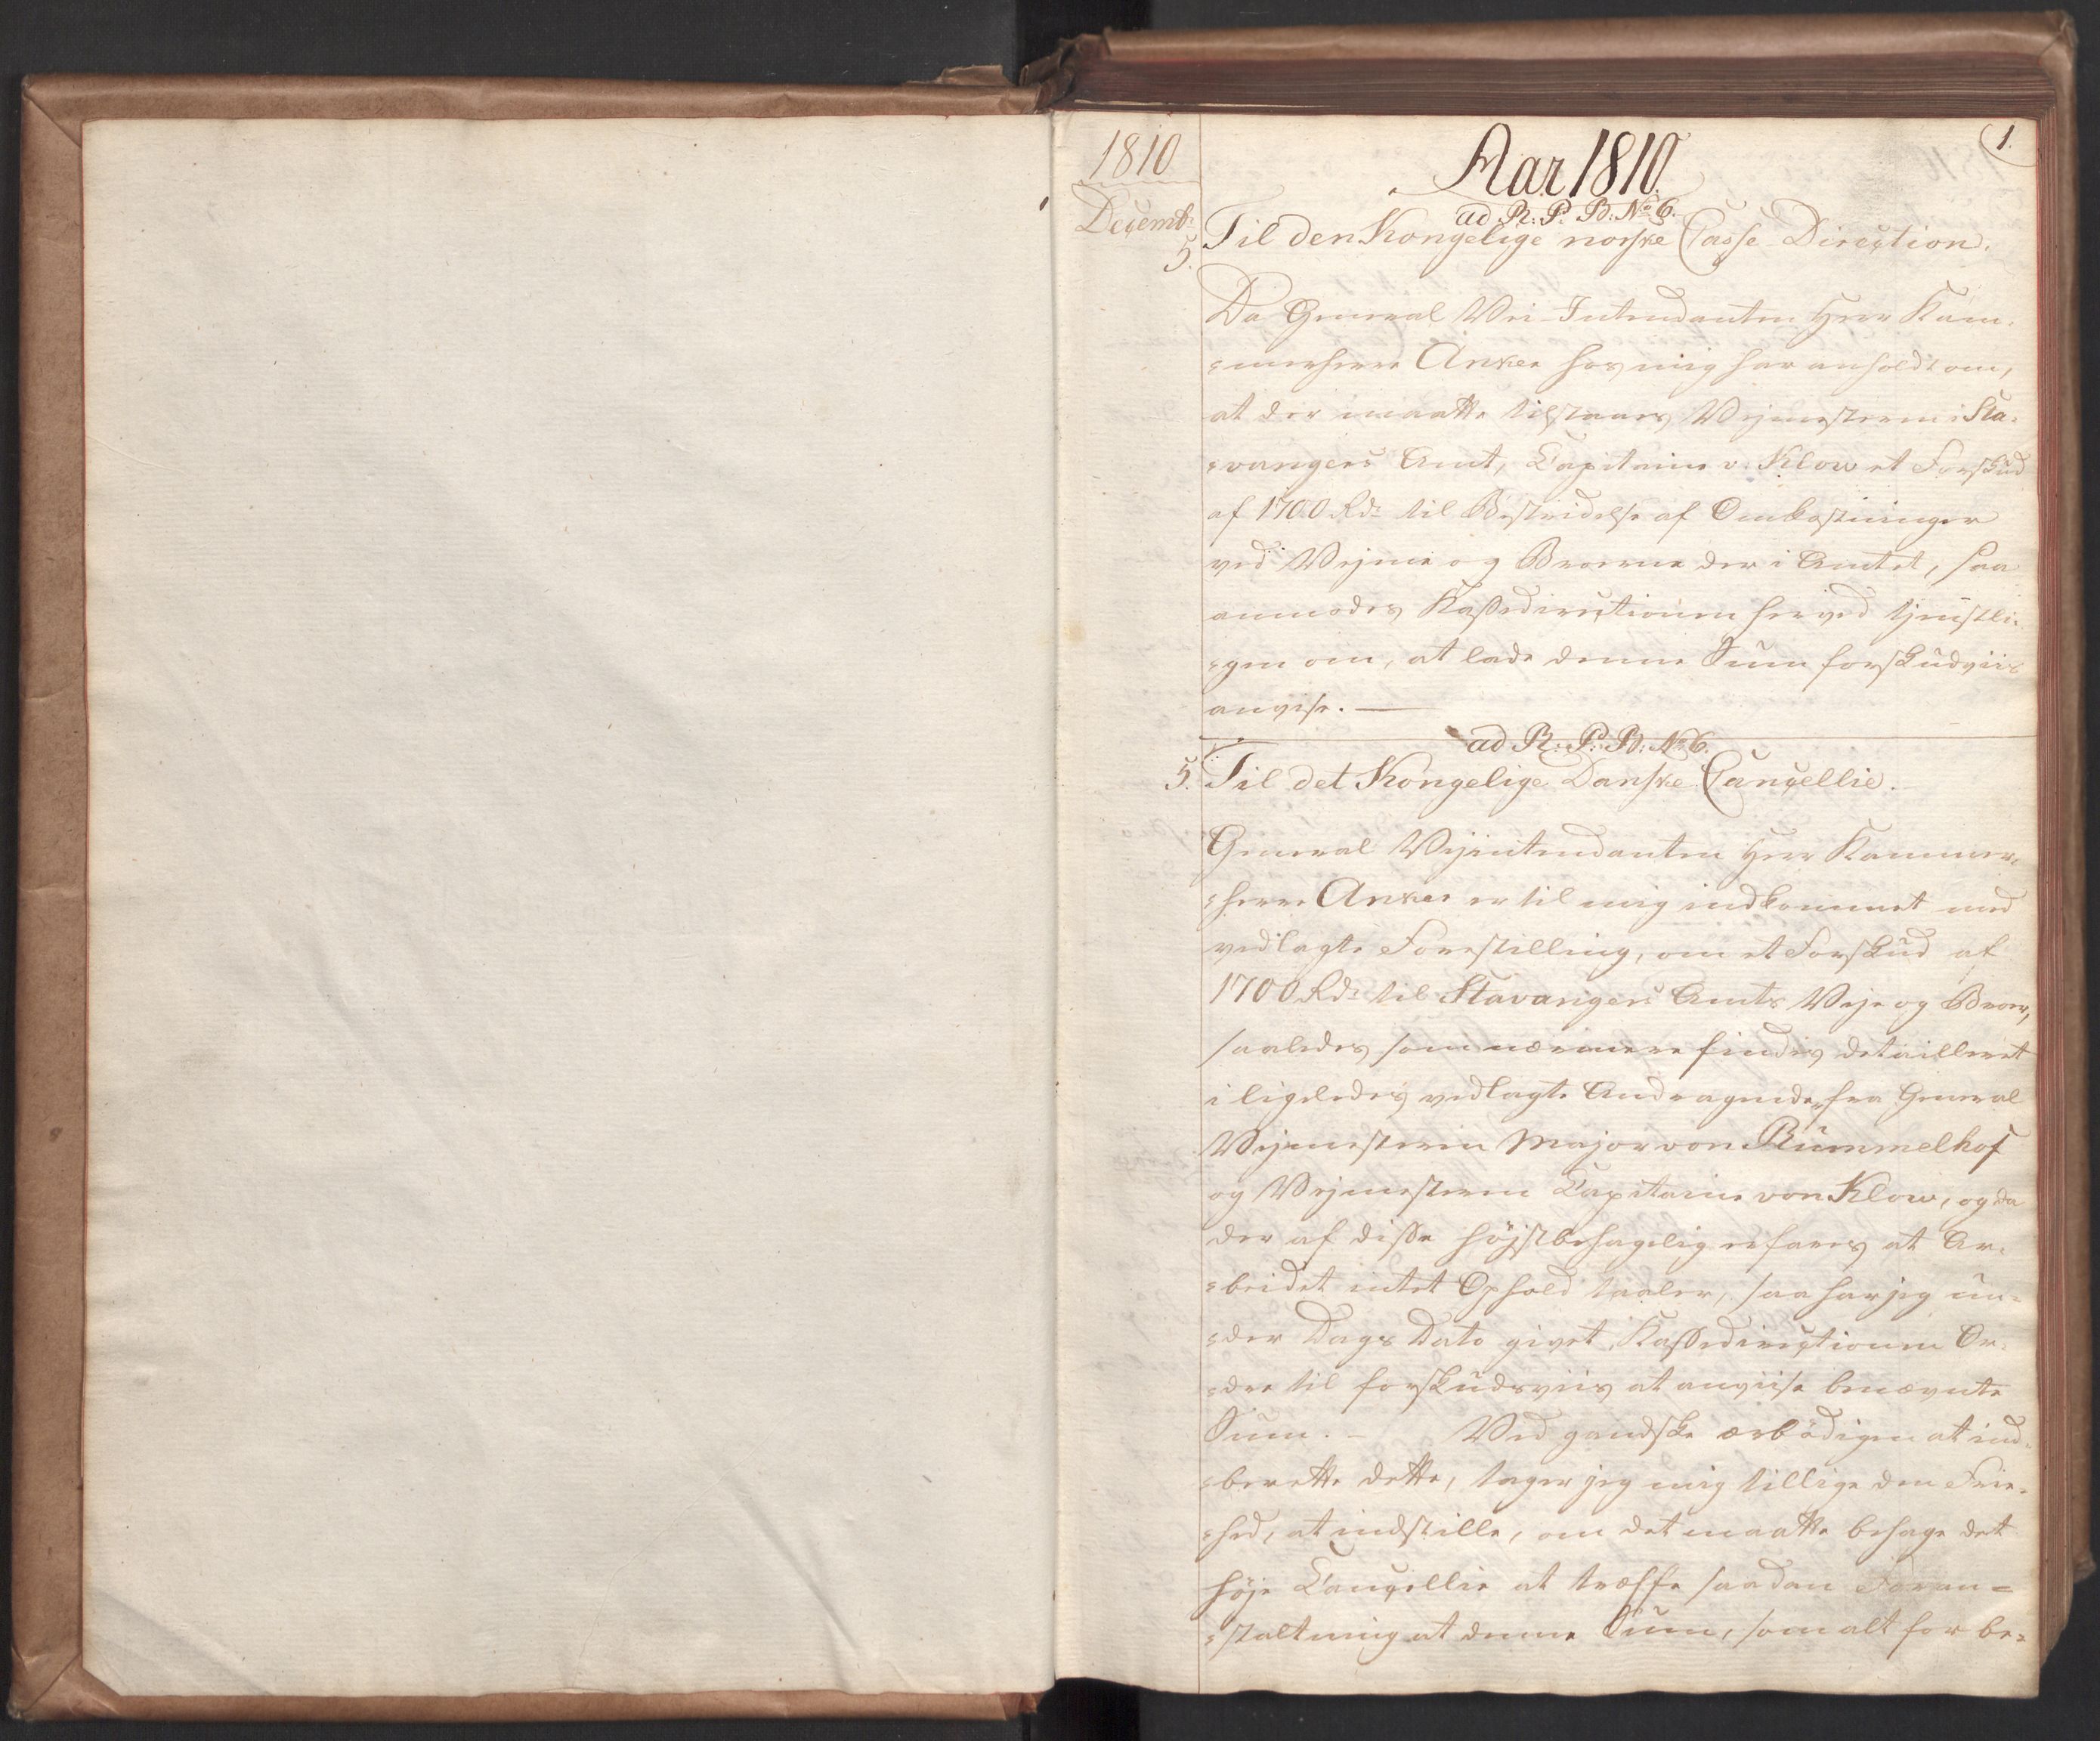 1.
1810
Aar 1810.
Decembr
ad R: P: B: No 6.
5.
Til den Kongelige norske Casse Direction.
Da General Vei-Intendanten Herr Kam-
-merherre Anker hos mig har anholdt om,
at der maatte tilstaaes Vejmesteren i Sta-
-vangers Amt, Capitaine v. Klow et Forskud
af 1700 Rdr til Bestridelse af Omkostninger
ved Vejene og Broerne der i Amtet, saa
anmodes Kassedirectionen herved tjenstli-
-gen om, at lade denne Sum forskudviis
anvise. —
ad R: P: B: No 6.
5. Til det Kongelige Danske Cancellie.
General Vejintendanten Herr Kammer-
-herre Anker er til mig indkommet med
vedlagte Forestilling, om et Forskud af
1700 Rdr til Stavangers Amts Veje og Broer,
saaledes som nærmere findes detailleret
i ligeledes vedlagte Andragender fra General
Vejmesteren Major von Rummelhof
og Vejmesteren Capitaine von Klow, og da
der af disse højstbehagelig erfares at Ar-
-beidet intet Ophold taaler, saa har jeg un-
-der Dags Dato givet Kassedirectionen Or-
-dre til forskudsviis at anviise benævnte
Sum. – Ved gandske ærbødigen at ind-
-berette dette, tager jeg mig tillige den Frie-
-hed, at indstille, om det maatte behage det
høje Cancellie at træffe saadan Foran-
-staltning at denne Sum, som alt for be-